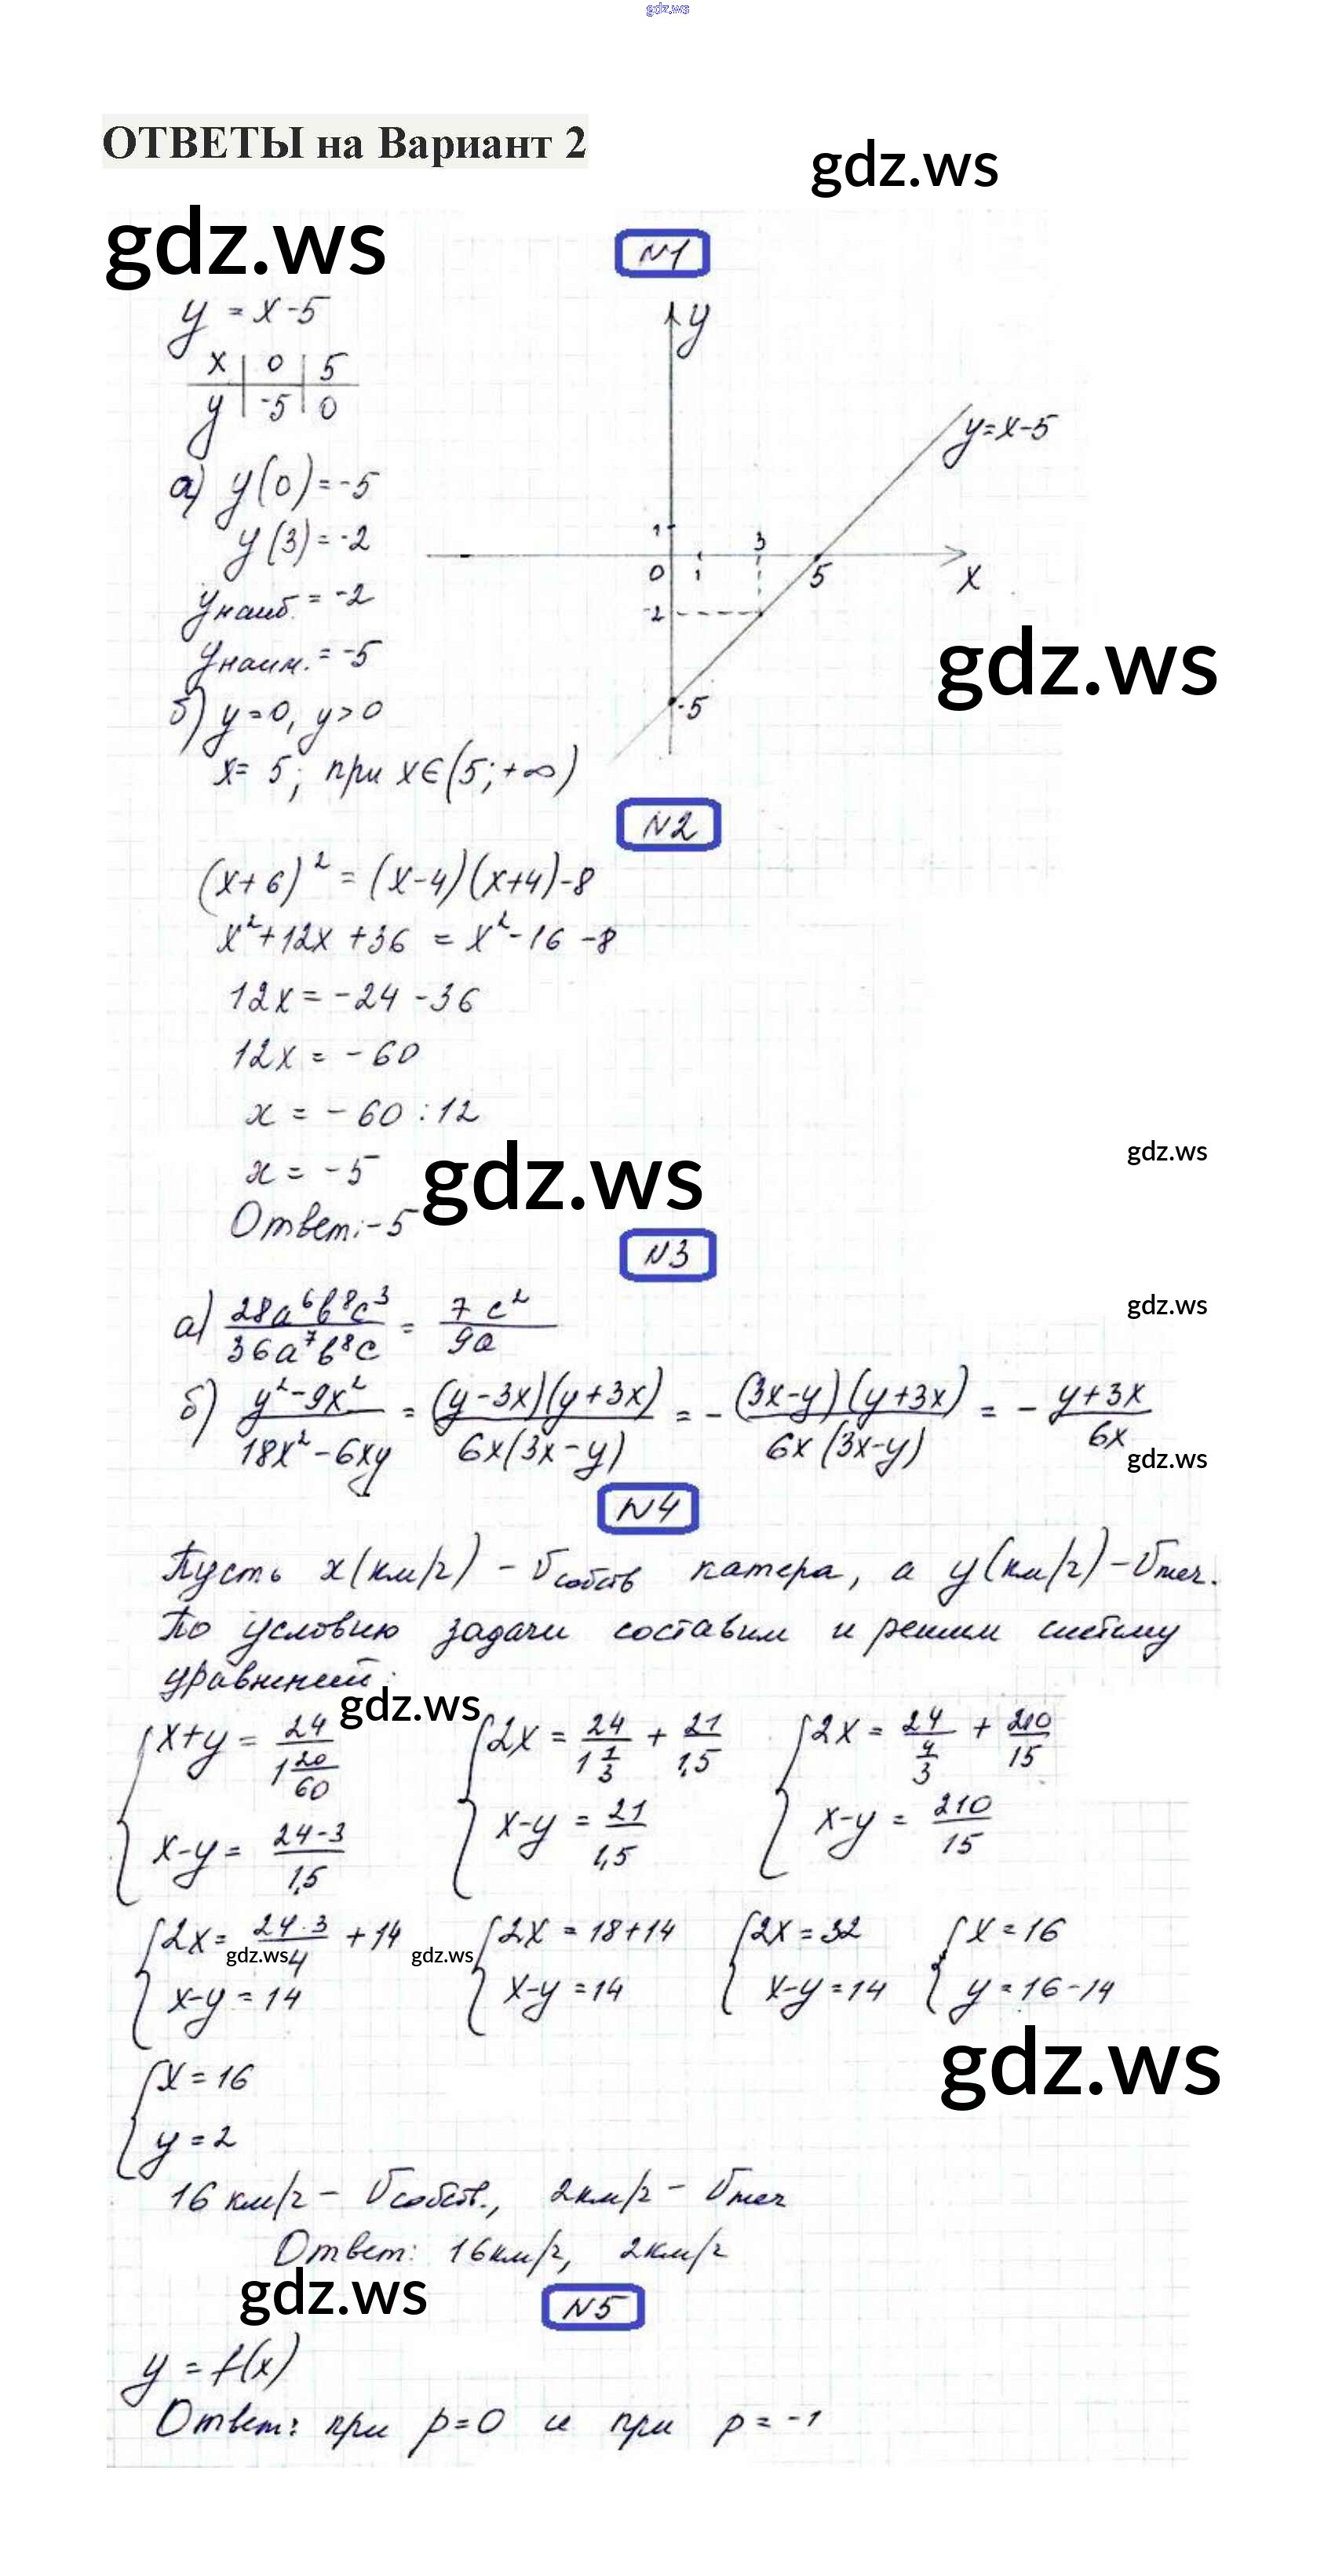 gdz.ws
ОТВЕТЫ на Вариант 2
gdz.ws
gdz.ws
N1
y = x - 5
x | 0 | 5
y | -5 | 0
а) y(0) = -5
y(3) = -2
yнаиб. = -2
yнаим. = -5
б) y = 0, y > 0
x = 5; при x ∈ (5; +∞)
y
y = x - 5
1
3
0
1
5
x
-2
-5
gdz.ws
N2
(x+6)² = (x-4)(x+4) - 8
x² + 12x + 36 = x² - 16 - 8
12x = -24 - 36
12x = -60
x = -60 : 12
x = -5
gdz.ws
gdz.ws
Ответ: -5
N3
а) 28a⁶b⁸c³ / 36a⁷b⁸c = 7c² / 9a
gdz.ws
б) (y² - 9x²) / (18x² - 6xy) = (y-3x)(y+3x) / 6x(3x-y) = - (3x-y)(y+3x) / 6x(3x-y) = - (y+3x) / 6x
gdz.ws
N4
Пусть x (км/ч) - Vсобств катера, а y (км/ч) - Vтеч.
По условию задачи составим и решим систему
уравнений:
gdz.ws
{ x+y = 24 / 1 20/60 { 2x = 24 / 1 1/3 + 21 / 1,5 { 2x = 24 / 4/3 + 210 / 15
x-y = 24-3 / 1,5 x-y = 21 / 1,5 x-y = 210 / 15
{ 2x = 24·3 / 4 + 14 { 2x = 18+14 { 2x = 32 { x = 16
gdz.ws gdz.ws
x-y = 14 x-y = 14 x-y = 14 y = 16-14
gdz.ws
{ x = 16
y = 2
16 км/ч - Vсобств., 2 км/ч - Vтеч
Ответ: 16 км/ч, 2 км/ч
gdz.ws
N5
y = f(x)
Ответ: при p = 0 и при p = -1